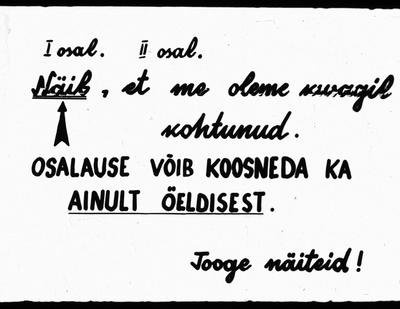 I osal. II osal.
Näib, et me oleme kuragil
kohtunud.
OSALAUSE VÕIB KOOSNEDA KA
AINULT ÖELDISEST.
Tooge näiteid!